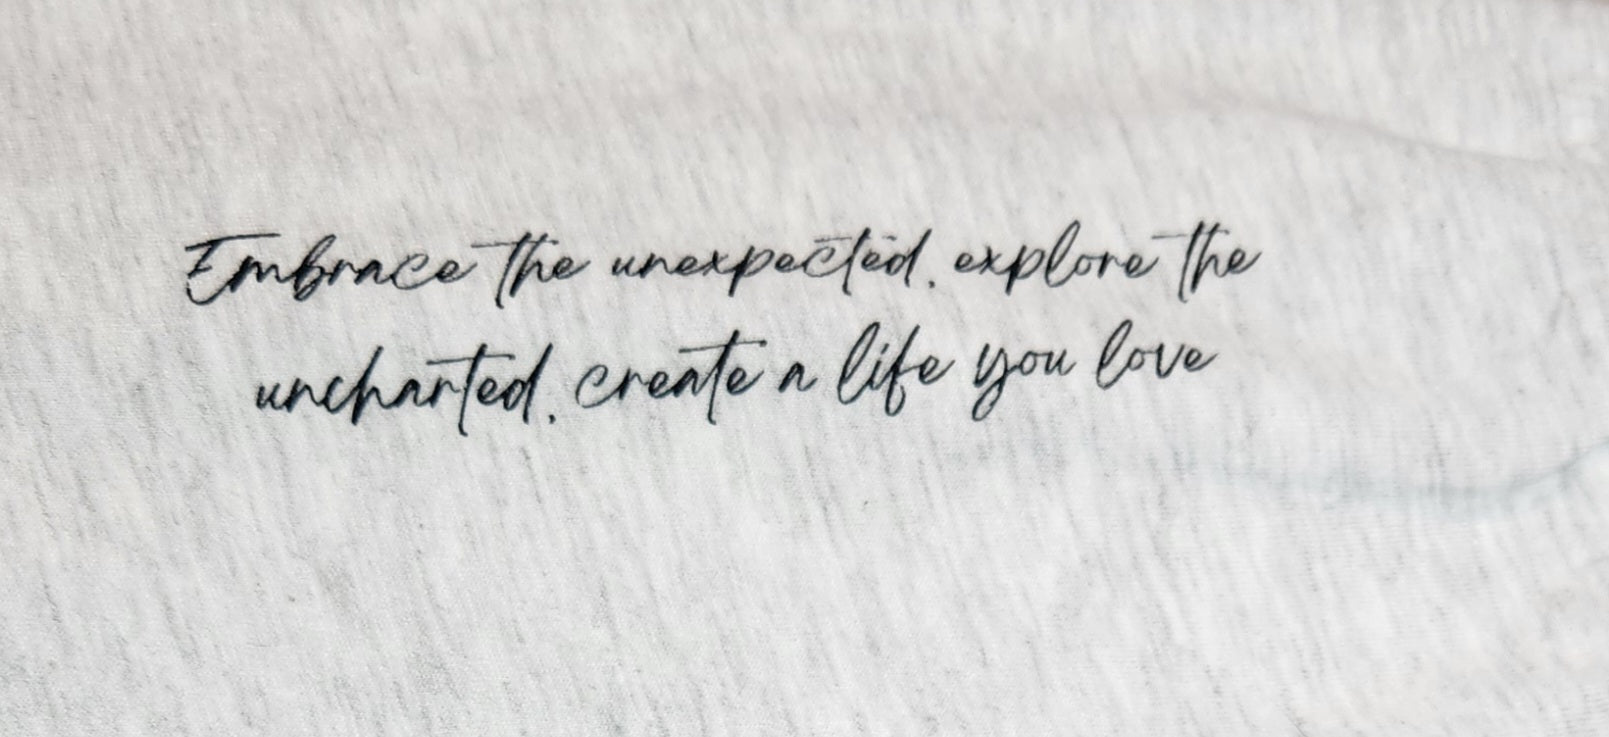 Embrace the unexpected, explore the
uncharted, create a life you love